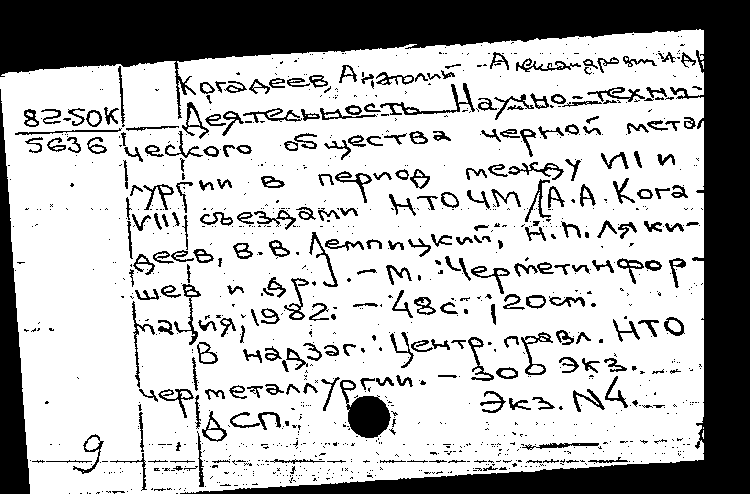 Когадеев, Анатолий Александрович и др
82-50К
5636
Деятельность Научно-техни-
ческого общества черной метал
лургии в период между VII и
VIII съездами НТОЧМ /[А.А. Кога-
деев, В.В. Лемпицкий, Н.П. Ляки-
шев и др.]. - М. : Черметинфор-
мация, 1982. - 48с. ; 20см.
В надзаг.: Центр. правл. НТО
чер. металлургии. - 300 экз.
ДСП. Экз. N4.
9